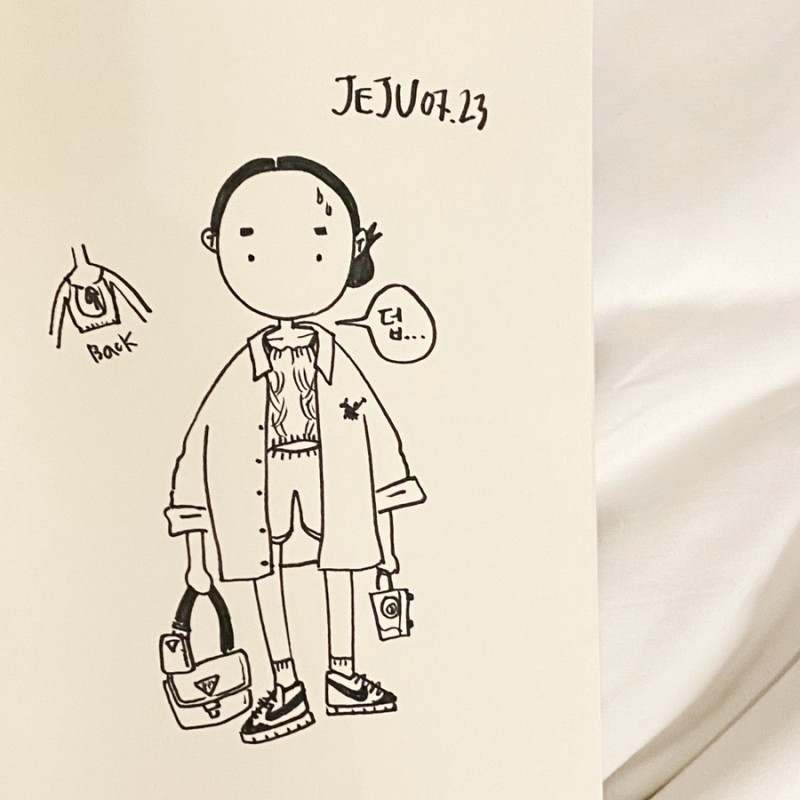 JEJU 07.23
덥...
BacK